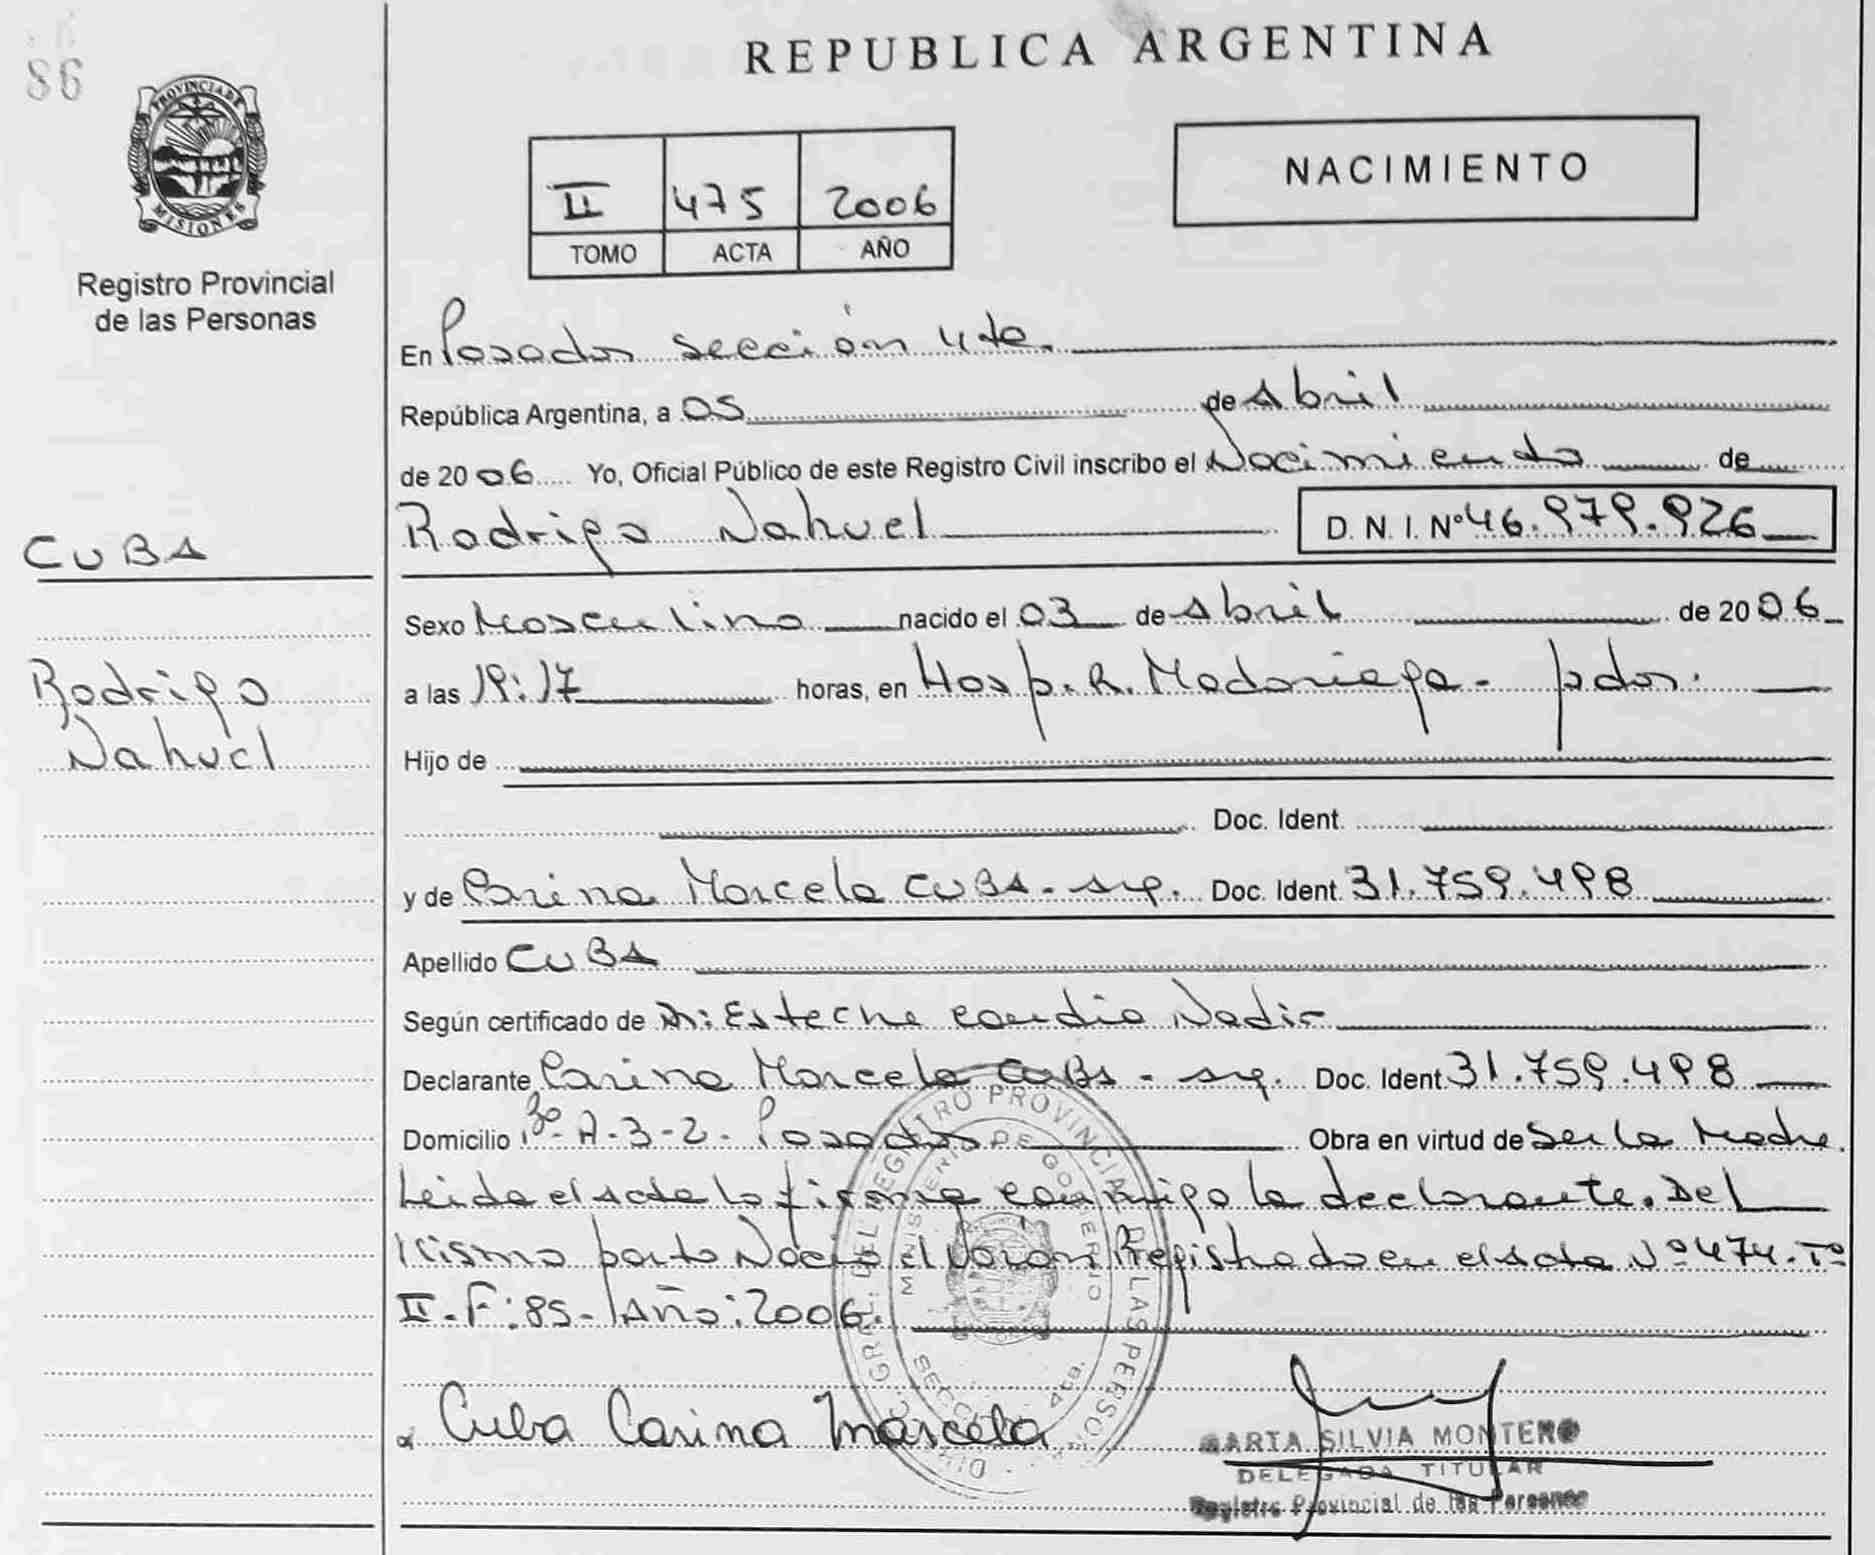 86
PROVINCIA DE
MISIONES
Registro Provincial
de las Personas
CUBA
Rodrigo
Nahuel
REPUBLICA ARGENTINA
NACIMIENTO
II 475 2006
TOMO ACTA AÑO
En Posadas sección 4ta.
República Argentina, a 05 de Abril
de 2006 Yo, Oficial Público de este Registro Civil inscribo el Nacimiento de
Rodrigo Nahuel D. N. I. Nº 46.979.926
Sexo Masculino nacido el 03 de Abril de 2006
a las 19:17 horas, en Hosp. R. Madariaga - pdas.
Hijo de
Doc. Ident.
y de Carina Marcela CUBA - arg. Doc. Ident. 31.759.498
Apellido CUBA
Según certificado de Dr: Esteche Claudio Nadir
Declarante Carina Marcela CUBA - arg. Doc. Ident 31.759.498
Domicilio A-3-2- Posadas Obra en virtud de Ser la Madre.
Leida el acta la firma conmigo la declarante. Del
Mismo parto Nació el Varón Registrado en el acta Nº 474-Tº
II-F:85-Año:2006.
Cuba Carina Marcela
DIRECC. GRAL. DEL REGISTRO PROVINCIAL DE LAS PERSONAS
MINISTERIO DE GOBIERNO
SECCION 4ta.
MARTA SILVIA MONTERO
DELEGADA TITULAR
Registro Provincial de las Personas